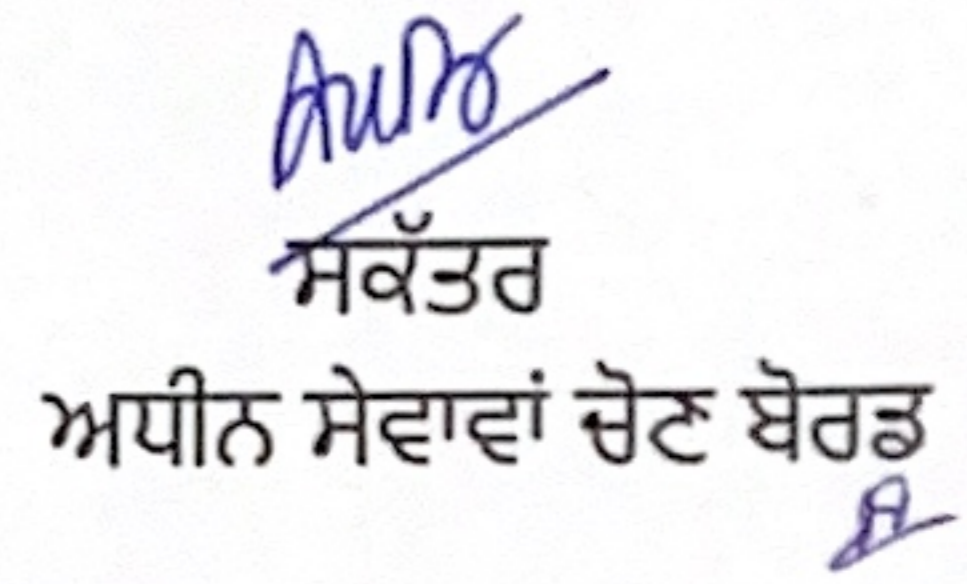 ਸਕੱਤਰ
ਅਧੀਨ ਸੇਵਾਵਾਂ ਚੋਣ ਬੋਰਡ